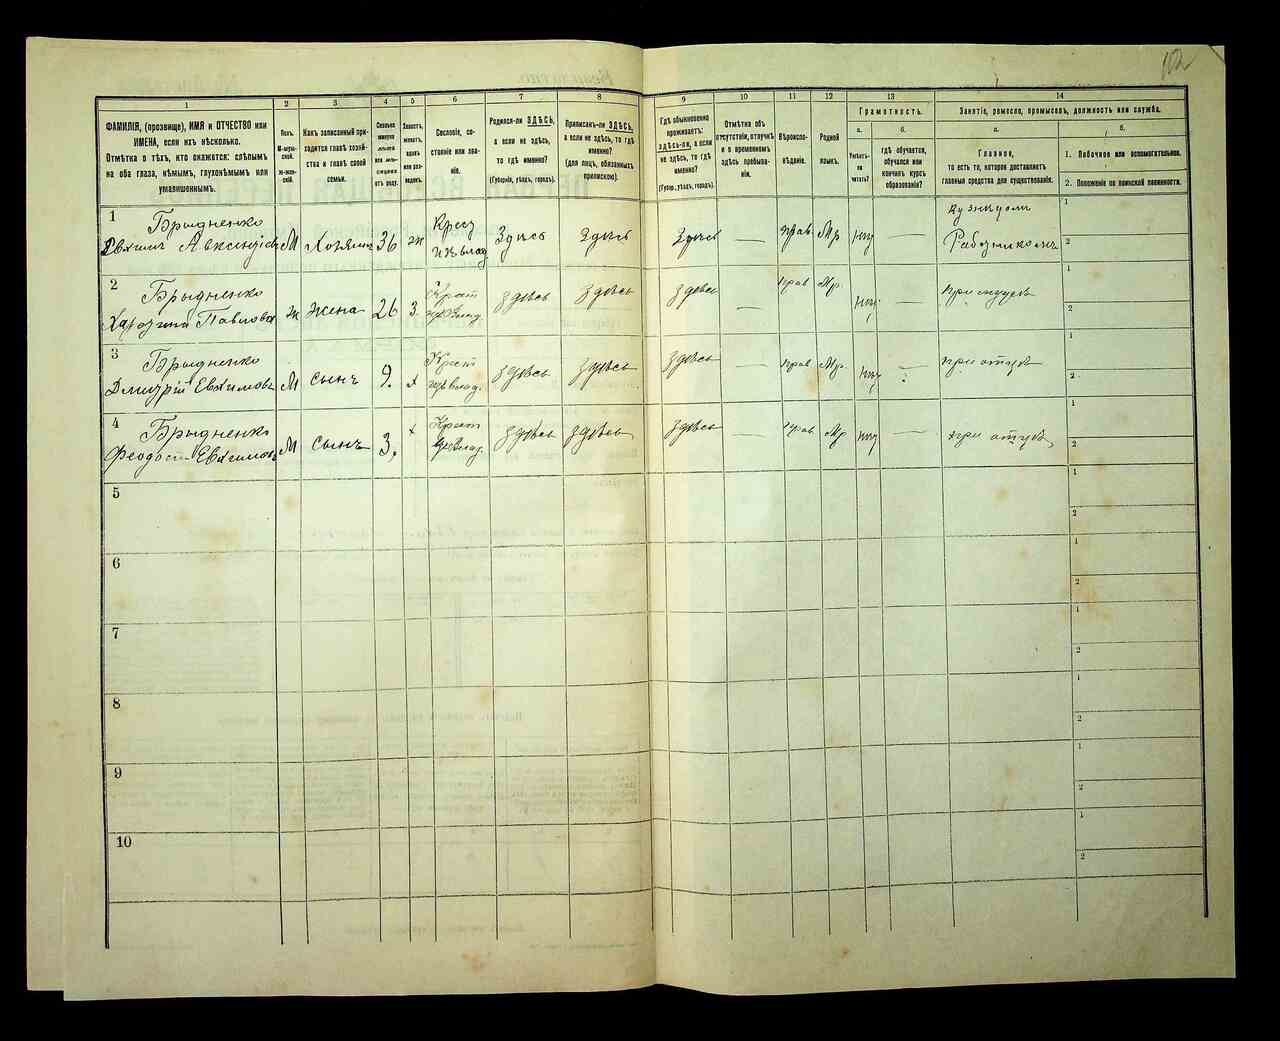 1
2
3
4
5
6
7
8
9
10
11
12
13
14
ФАМИЛІЯ, (прозвище), ИМЯ и ОТЧЕСТВО или
ИМЕНА, если ихъ нѣсколько.
Отмѣтка о тѣхъ, кто окажется: слѣпымъ
на оба глаза, нѣмымъ, глухонѣмымъ или
умалишеннымъ.
Полъ.
М-мужской.
Ж-женскій.
Какъ записанный приходится главѣ хозяйства и главѣ своей семьи.
Сколько минуло лѣтъ или мѣсяцевъ отъ роду.
Холостъ, женатъ, вдовъ или разведенъ.
Сословіе, состояніе или званіе.
Родился-ли ЗДѢСЬ,
а если не здѣсь,
то гдѣ именно?
(Губернія, уѣздъ, городъ).
Приписанъ-ли ЗДѢСЬ,
а если не здѣсь, то гдѣ
именно?
(для лицъ, обязанныхъ
припискою).
Гдѣ обыкновенно
проживаетъ:
здѣсь-ли, а если
не здѣсь, то гдѣ
именно?
(Губерн., уѣздъ, городъ).
Отмѣтка объ
отсутствіи, отлучкѣ
и о временномъ
здѣсь пребываніи.
Вѣроисповѣданіе.
Родной
языкъ.
Грамотность.
а.
Умѣетъ-ли
читать?
б.
гдѣ обучается,
обучался или
кончилъ курсъ
образованія?
Занятіе, ремесло, промыселъ, должность или служба.
а.
Главное,
то есть то, которое доставляетъ
главныя средства для существованія.
б.
1. Побочное или вспомогательное.
2. Положеніе по воинской повинности.
1
Брыдненко
Евхимъ
М Хозяинъ 36 ж Крест
Здѣсь Здѣсь Здѣсь — прав Мр нѣт —
1
2
2
Брыдненко
Павлова
ж жена 26 З. Крест
здѣсь здѣсь здѣсь — прав Мр. нѣт —
при мужѣ
1
2
3
Брыдненко
Дмитрій Евхимовъ
М сынъ 9. х Крест
здѣсь здѣсь здѣсь — прав Мр. нѣт —
при отцѣ
1
2
4
Брыдненко
Феодос Евхимовъ
М сынъ 3. х Крест
здѣсь здѣсь здѣсь — прав Мр нѣт —
при отцѣ
1
2
5
1
2
6
1
2
7
1
2
8
1
2
9
1
2
10
1
2